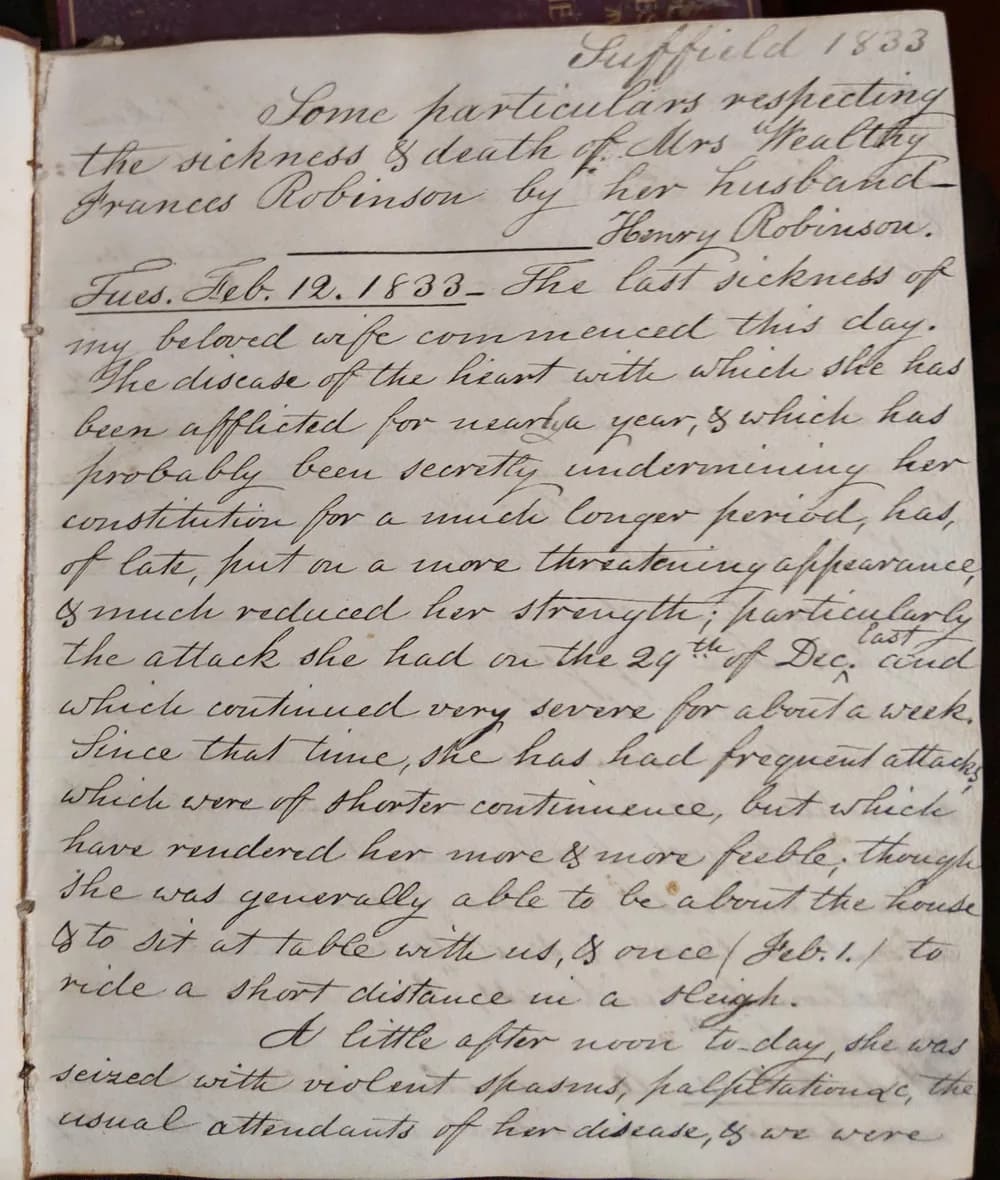 Suffield 1833
Some particulars respecting
the sickness & death of Mrs Wealthy
Frances Robinson by her husband—
Henry Robinson.
Tues. Feb. 12. 1833— The last sickness of
my beloved wife commenced this day.
The disease of the heart with which she has
been afflicted for nearly a year, & which has
probably been secretly undermining her
constitution for a much longer period, has,
of late, put on a more threatening appearance,
& much reduced her strength; particularly
the attack she had on the 29th of Dec. last and
which continued very severe for about a week.
Since that time, she has had frequent attacks,
which were of shorter continuence, but which
have rendered her more & more feeble; though
she was generally able to be about the house
& to sit at table with us, & once (Feb. 1.) to
ride a short distance in a sleigh.
A little after noon to-day, she was
seized with violent spasms, palpitation &c, the
usual attendants of her disease, & we were